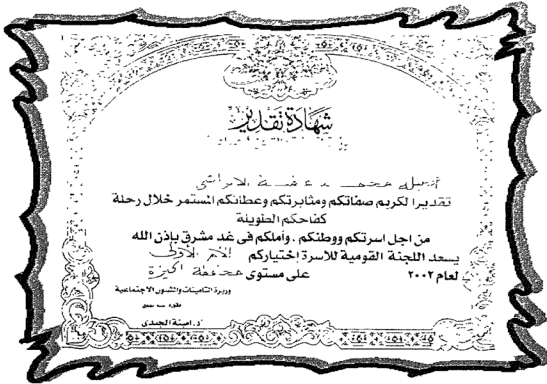 شهادة تقدير
محمد عطية الابراشى
تقديرا لكريم صفاتكم ومثابرتكم وعطائكم المستمر خلال رحلة
كفاحكم الطويلة
من اجل اسرتكم ووطنكم ، وأملكم فى غد مشرق بإذن الله
يسعد اللجنة القومية للأسرة إختياركم الأم الأولى
لعام ٢٠٠٢ على مستوى محافظة الجيزة
وزيرة التأمينات والشئون الاجتماعية
د. أمينة الجندى